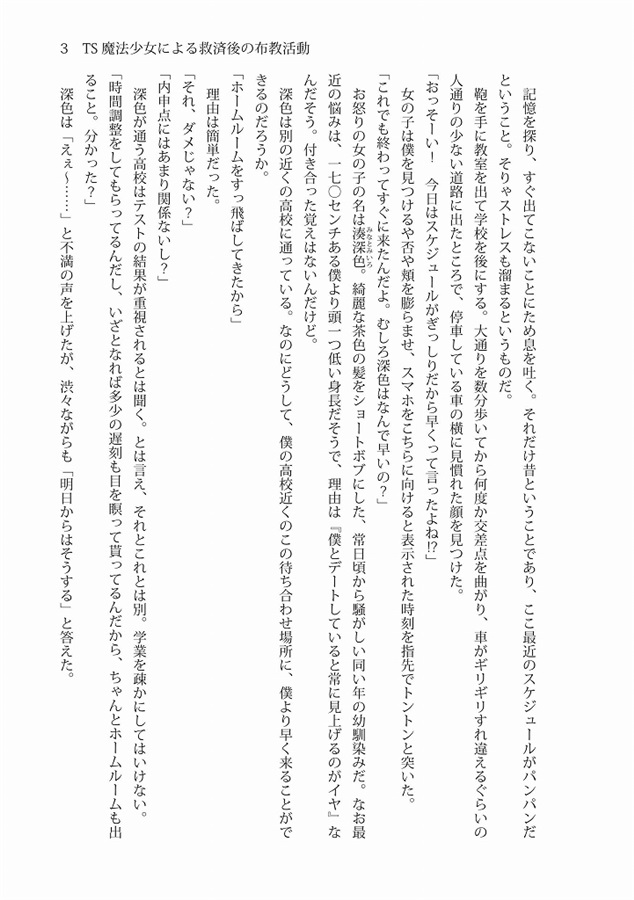 3　TS魔法少女による救済後の布教活動
　記憶を探り、すぐ出てこないことにため息を吐く。それだけ昔ということであり、ここ最近のスケジュールがパンパンだ
ということ。そりゃストレスも溜まるというものだ。
　鞄を手に教室を出て学校を後にする。大通りを数分歩いてから何度か交差点を曲がり、車がギリギリすれ違えるぐらいの
人通りの少ない道路に出たところで、停車している車の横に見慣れた顔を見つけた。
「おっそーい！　今日はスケジュールがぎっしりだから早くって言ったよね!?」
　女の子は僕を見つけるや否や頬を膨らませ、スマホをこちらに向けると表示された時刻を指先でトントンと突いた。
「これでも終わってすぐに来たんだよ。むしろ深色はなんで早いの？」
　お怒りの女の子の名は湊深色みなとみいろ。綺麗な茶色の髪をショートボブにした、常日頃から騒がしい同い年の幼馴染みだ。なお最
近の悩みは、一七〇センチある僕より頭一つ低い身長だそうで、理由は『僕とデートしていると常に見上げるのがイヤ』な
んだそう。付き合った覚えはないんだけど。
　深色は別の近くの高校に通っている。なのにどうして、僕の高校近くのこの待ち合わせ場所に、僕より早く来ることがで
きるのだろうか。
「ホームルームをすっ飛ばしてきたから」
　理由は簡単だった。
「それ、ダメじゃない？」
「内申点にはあまり関係ないし？」
　深色が通う高校はテストの結果が重視されるとは聞く。とは言え、それとこれとは別。学業を疎かにしてはいけない。
「時間調整をしてもらってるんだし、いざとなれば多少の遅刻も目を瞑って貰ってるんだから、ちゃんとホームルームも出
ること。分かった？」
　深色は「えぇ～……」と不満の声を上げたが、渋々ながらも「明日からはそうする」と答えた。